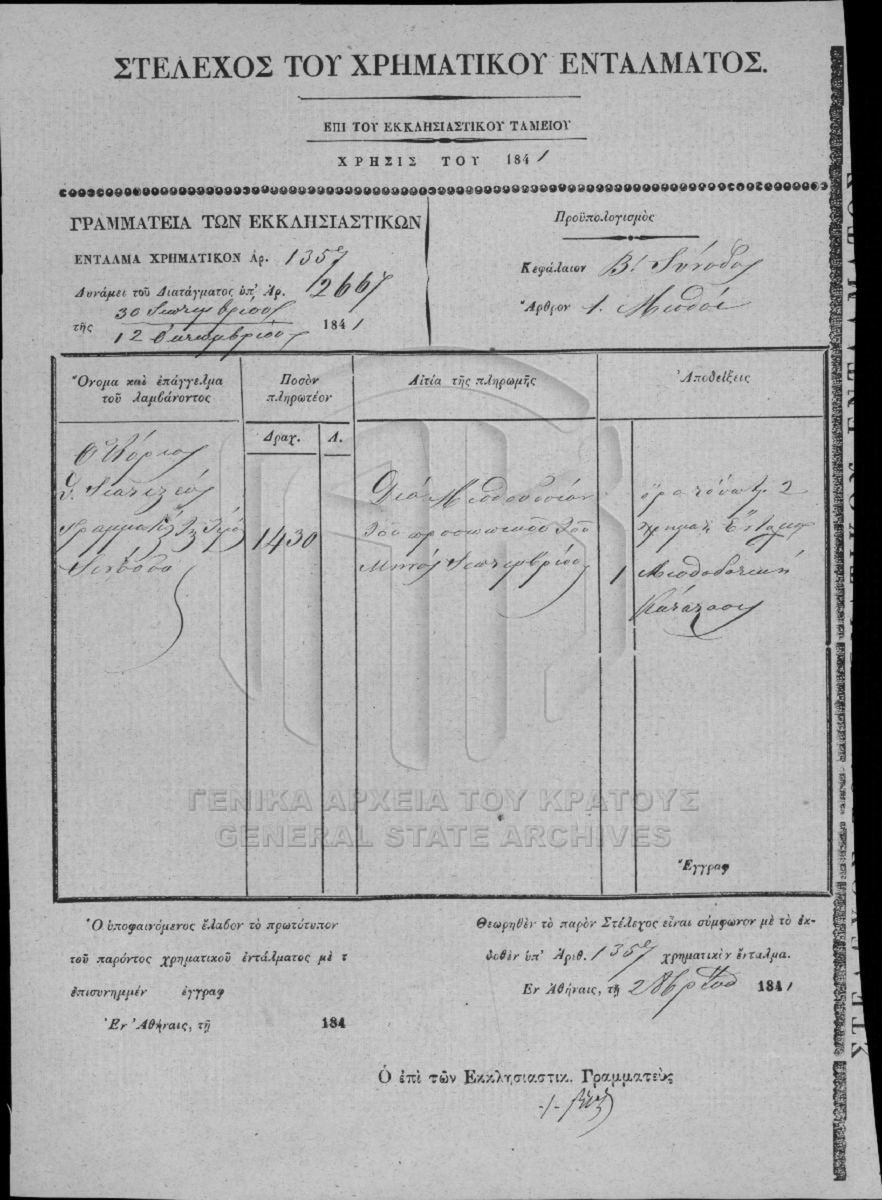 ΣΤΕΛΕΧΟΣ ΤΟΥ ΧΡΗΜΑΤΙΚΟΥ ΕΝΤΑΛΜΑΤΟΣ.
ΕΠΙ ΤΟΥ ΕΚΚΛΗΣΙΑΣΤΙΚΟΥ ΤΑΜΕΙΟΥ
ΧΡΗΣΙΣ ΤΟΥ 1841
ΓΡΑΜΜΑΤΕΙΑ ΤΩΝ ΕΚΚΛΗΣΙΑΣΤΙΚΩΝ
ΕΝΤΑΛΜΑ ΧΡΗΜΑΤΙΚΟΝ Ἀρ. 1357
Δυνάμει τοῦ Διατάγματος ὑπ' Ἀρ. 12667
τῆς 30 Σεπτεμβρίου
12 Ὀκτωμβρίου 1841
Προϋπολογισμὸς
Κεφάλαιον Β! Σύνοδος
Ἄρθρον 1. Μισθοὶ
Ὄνομα καὶ ἐπάγγελμα
τοῦ λαμβάνοντος
Ποσὸν
πληρωτέον
Δραχ. Λ.
Αἰτία τῆς πληρωμῆς
Ἀποδείξεις
Ὁ Κύριος
Γραμματεὺς
Συνόδου
1430
Διὰ Μισθοδοσίαν
τοῦ προσωπικοῦ τοῦ
Μηνὸς Σεπτεμβρίου
2
1 Μισθοδοτικὴ
Κατάστασις
Ἐγγραφ
ΓΕΝΙΚΑ ΑΡΧΕΙΑ ΤΟΥ ΚΡΑΤΟΥΣ
GENERAL STATE ARCHIVES
Ὁ ὑποφαινόμενος ἔλαβον τὸ πρωτότυπον
τοῦ παρόντος χρηματικοῦ ἐντάλματος μὲ τ
ἐπισυνημμέν ἐγγραφ
Ἐν Ἀθήναις, τῇ 184
Θεωρηθὲν τὸ παρὸν Στέλεχος εἶναι σύμφωνον μὲ τὸ ἐκ-
δοθὲν ὑπ' Ἀριθ. 1357 χρηματικὸν ἔνταλμα.
Ἐν Ἀθήναις, τῇ 2 8βρίου 1841
Ὁ ἐπὶ τῶν Ἐκκλησιαστικ. Γραμματεὺς